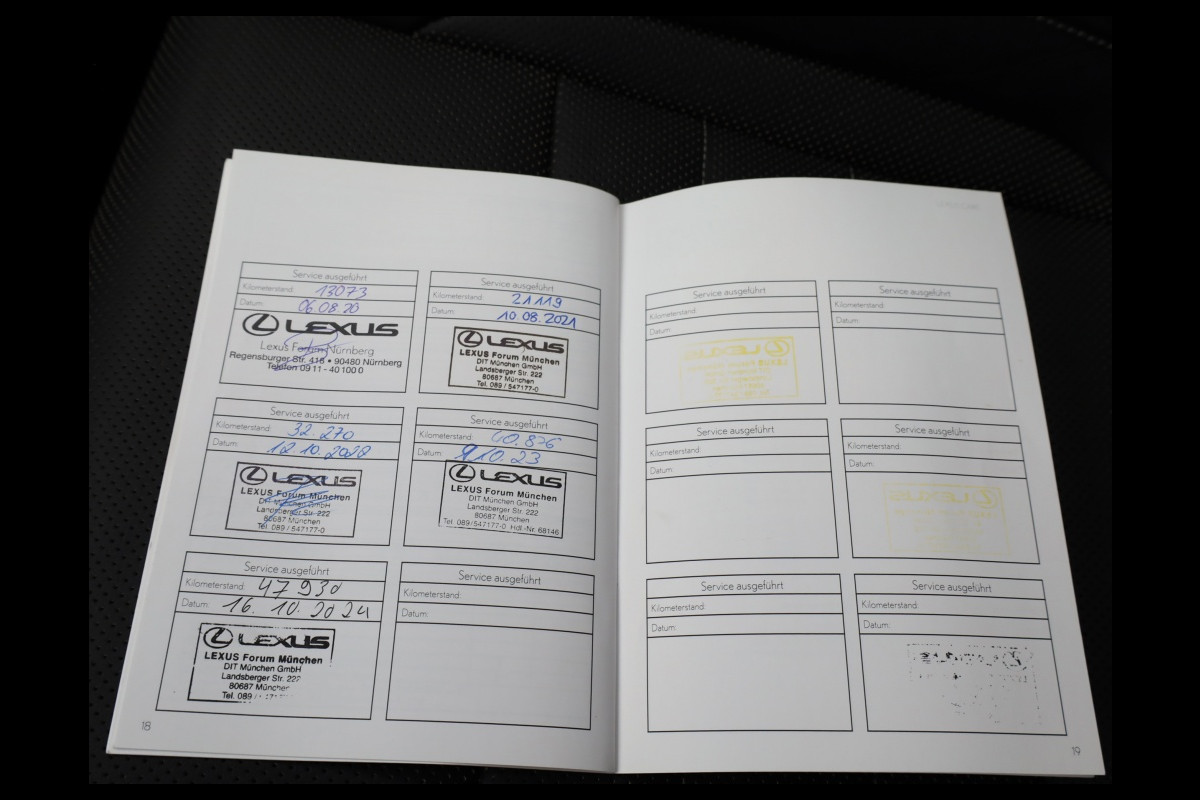 Service ausgeführt
Kilometerstand: 13073
Datum: 06.08.20
LEXUS
Lexus Forum Nürnberg
Regensburger Str. 418 • 90480 Nürnberg
Telefon 09 11 - 40 100 0
Service ausgeführt
Kilometerstand: 21119
Datum: 10 08.2021
LEXUS
LEXUS Forum München
DIT München GmbH
Landsberger Str. 222
80687 München
Tel. 089 / 547177-0
Service ausgeführt
Kilometerstand: 32.270
Datum: 12.10.2020
LEXUS
LEXUS Forum München
DIT München GmbH
Landsberger Str. 222
80687 München
Tel. 089 / 547177-0
Service ausgeführt
Kilometerstand: 40.836
Datum: 9.10.23
LEXUS
LEXUS Forum München
DIT München GmbH
Landsberger Str. 222
80687 München
Tel. 089/547177-0 Hdl.-Nr. 68146
Service ausgeführt
Kilometerstand: 47930
Datum: 16. 10. 2024
LEXUS
LEXUS Forum München
DIT München GmbH
Landsberger Str. 222
80687 München
Tel. 089
Service ausgeführt
Kilometerstand:
Datum:
18
Service ausgeführt
Kilometerstand:
Datum:
Service ausgeführt
Kilometerstand:
Datum:
Service ausgeführt
Kilometerstand:
Datum:
Service ausgeführt
Kilometerstand:
Datum:
Service ausgeführt
Kilometerstand:
Datum:
Service ausgeführt
Kilometerstand:
Datum:
19